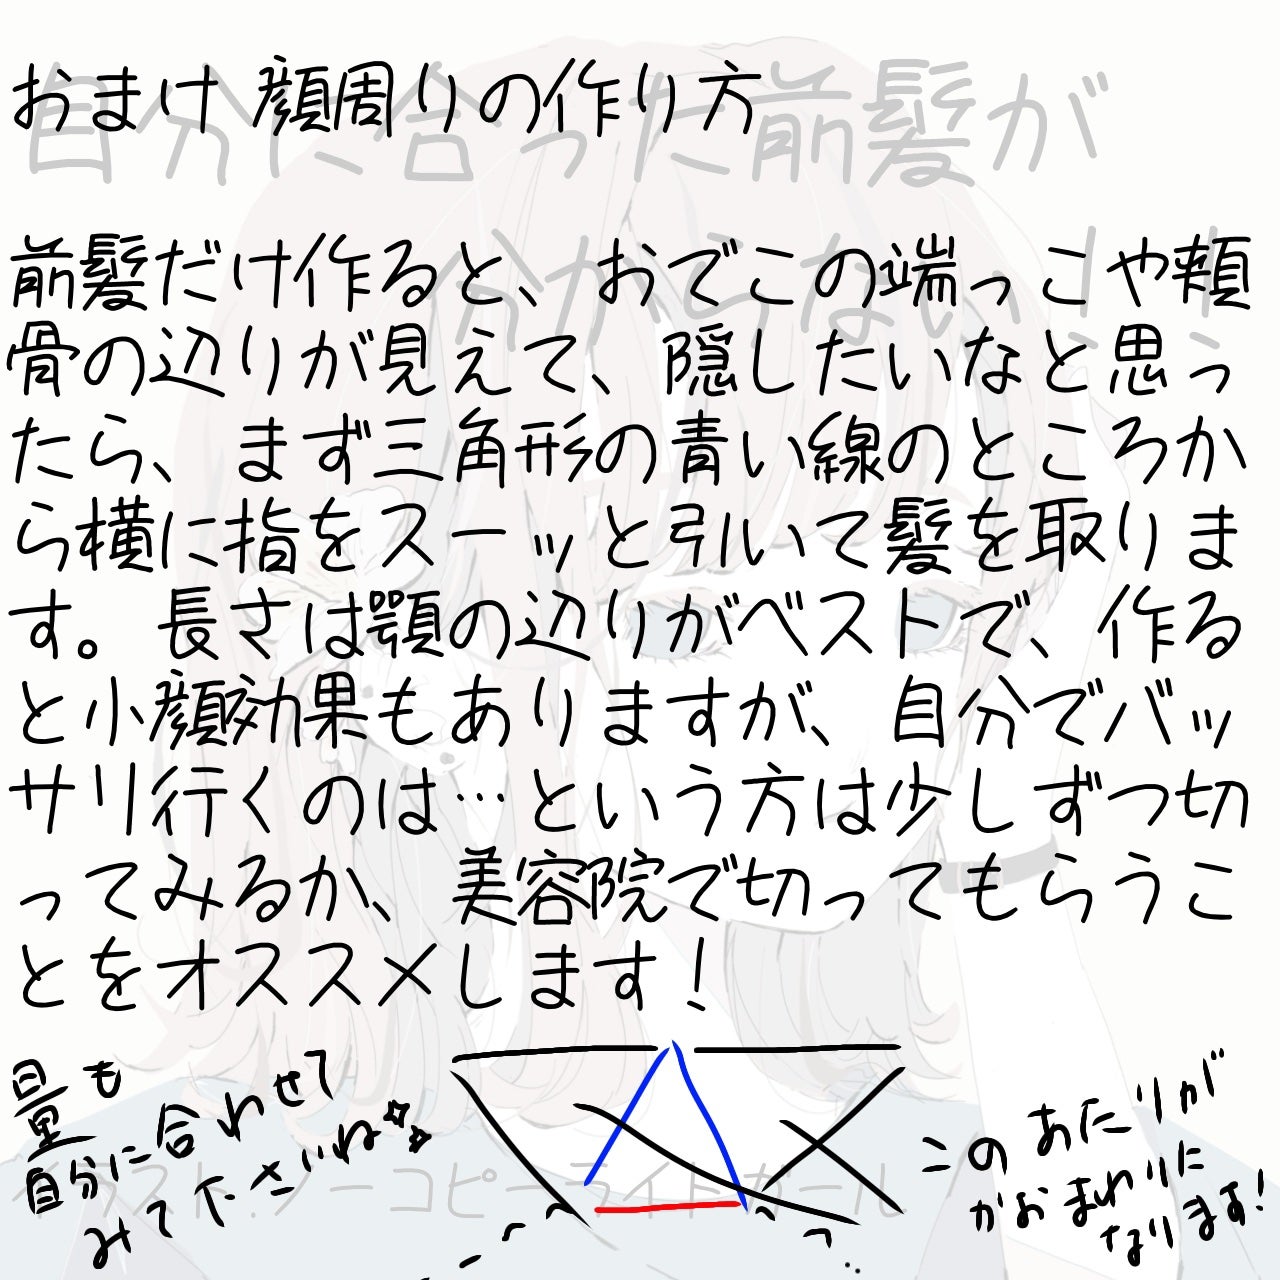 おまけ 顔周りの作り方
自分に合った前髪が
分からない!!
前髪だけ作ると、おでこの端っこや頬
骨の辺りが見えて、隠したいなと思っ
たら、まず三角形の青い線のところか
ら横に指をスーッと引いて髪を取りま
す。長さは顎の辺りがベストで、作る
と小顔効果もありますが、自分でバッ
サリ行くのは…という方は少しずつ切
ってみるか、美容院で切ってもらうこ
とをオススメします!
量も
自分に合わせて
みて下さいね
このあたりが
かおまわりに
なります!
イラスト:ノーコピーライトガール